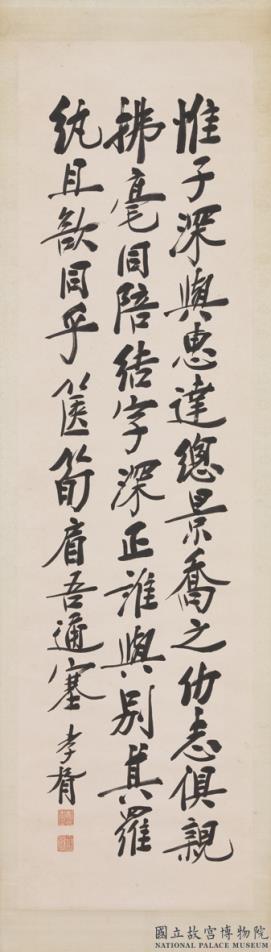 惟子深與忠達總景喬之仿志俱親
拂毫同陪結字深正誰與別其羅
紈且歙同乎篋笥眉吾通塞 李脊
國立故宮博物院
NATIONAL PALACE MUSEUM